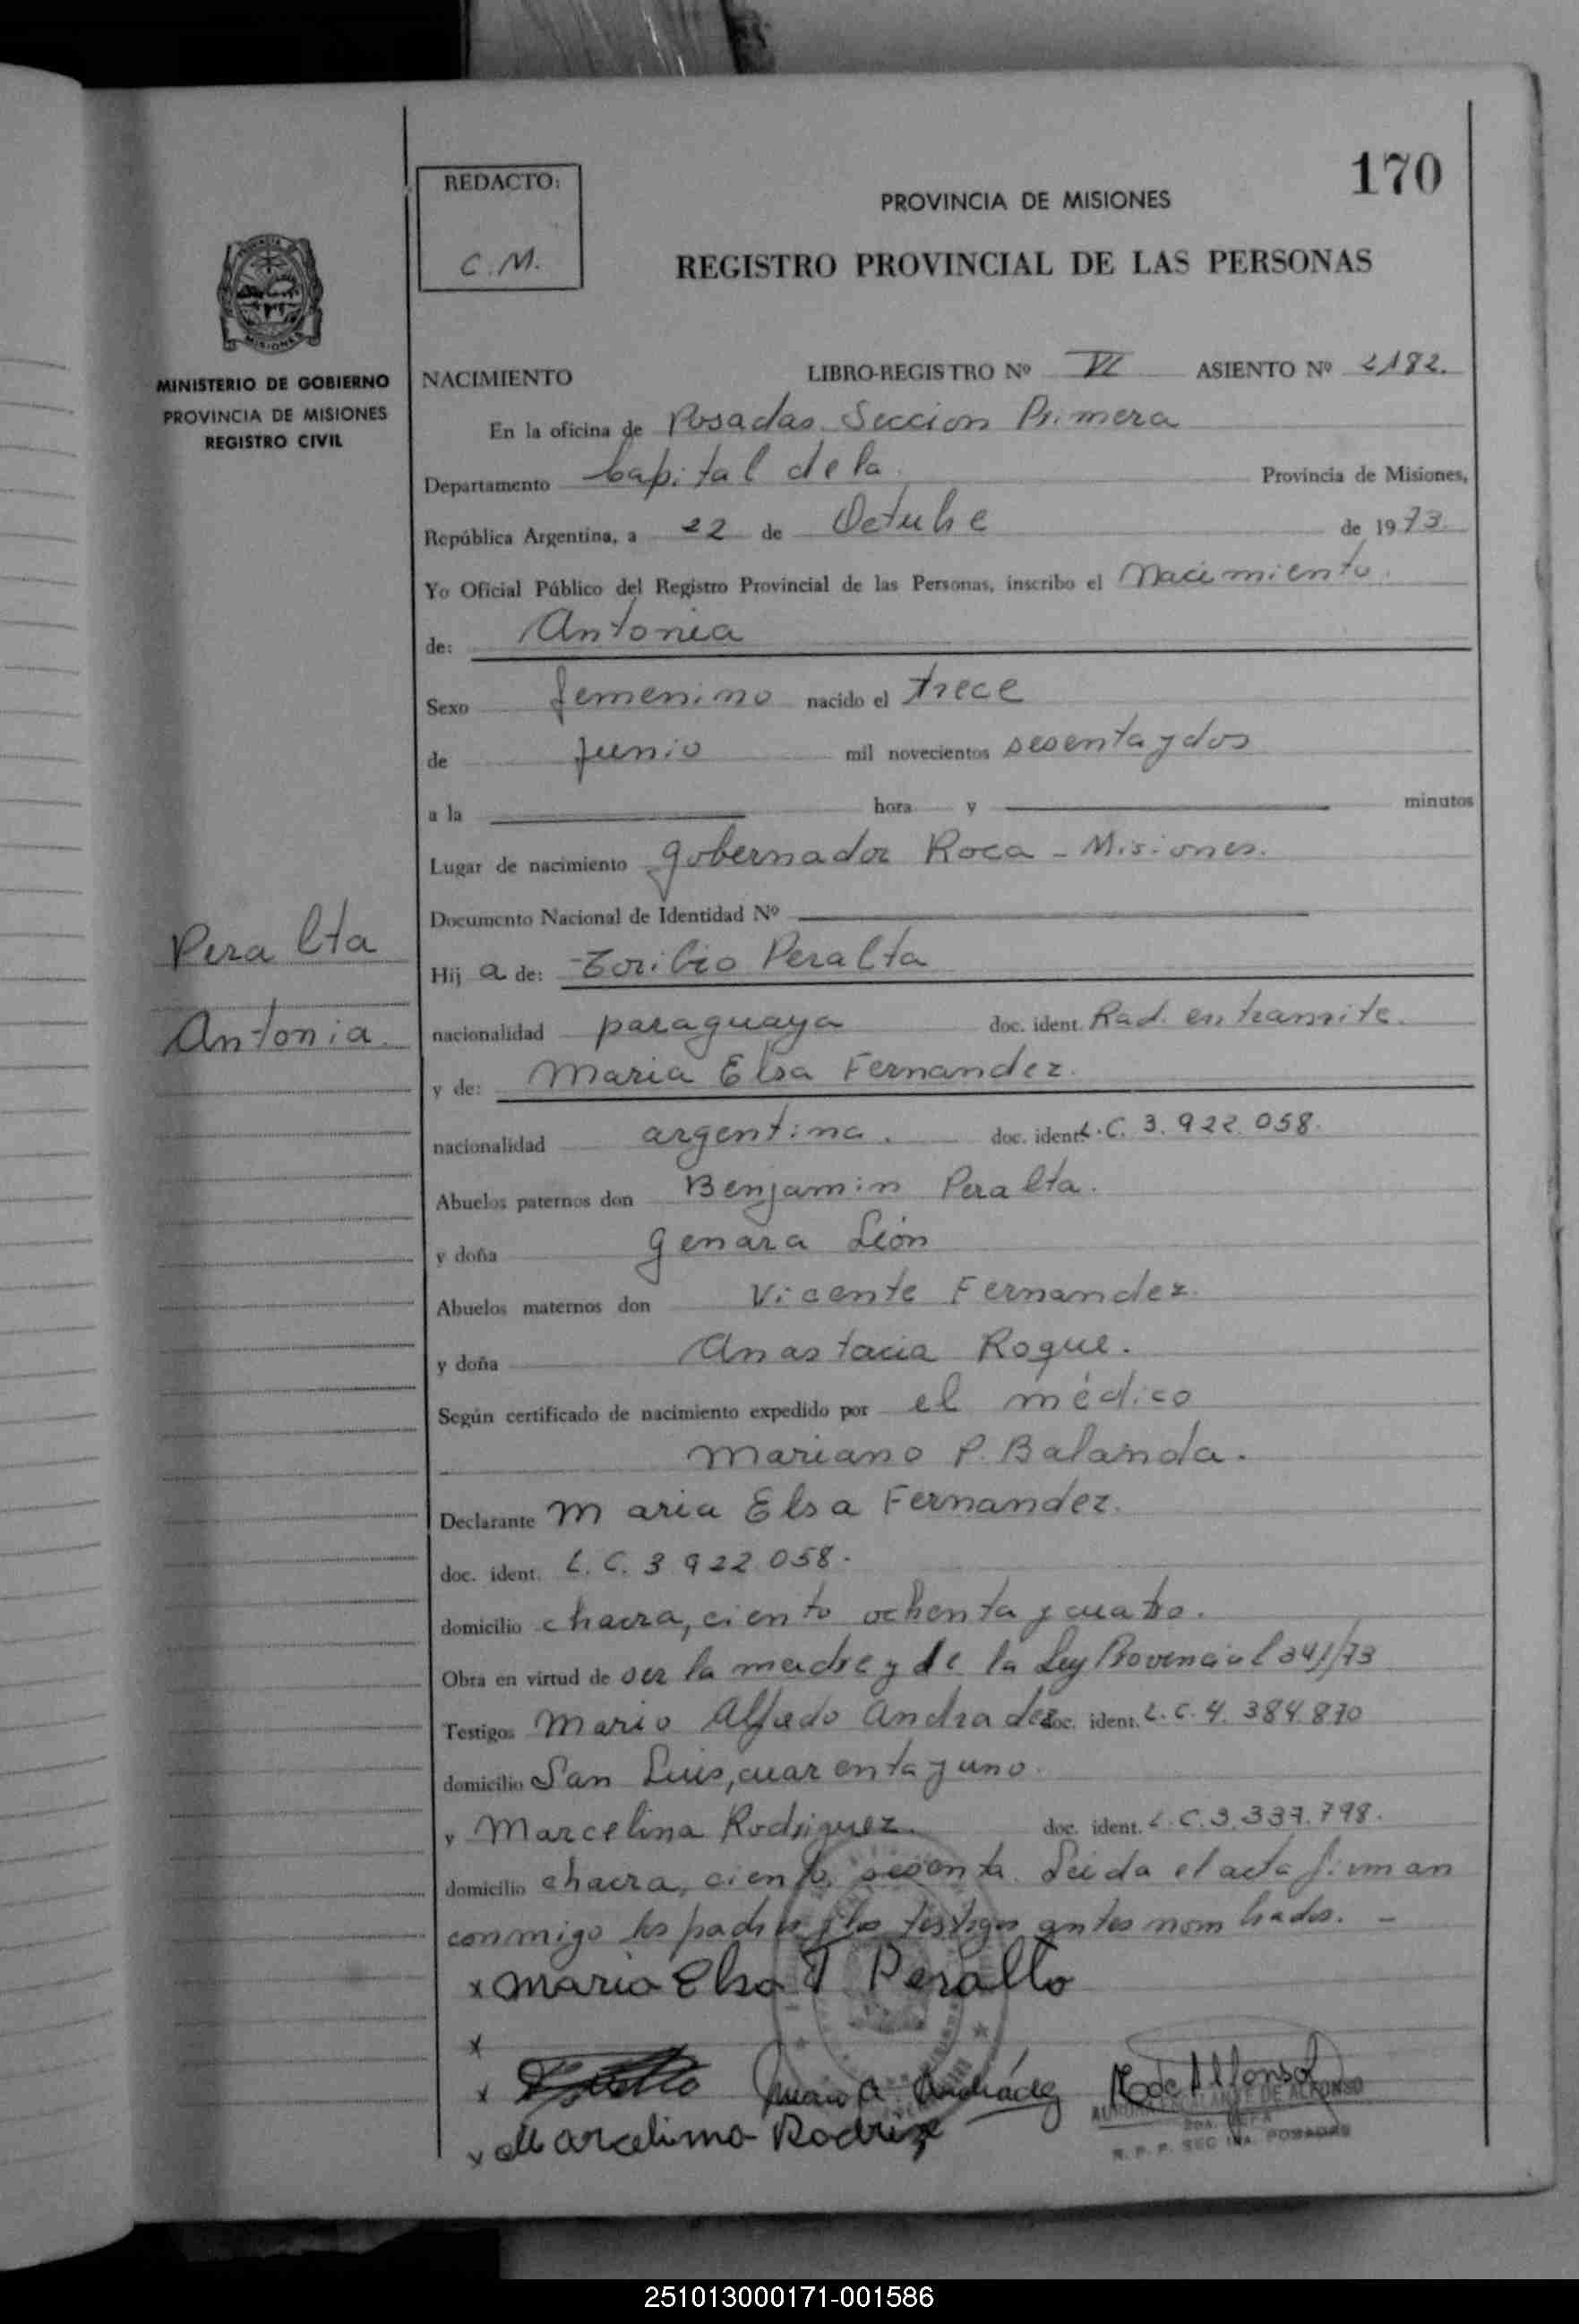 170
REDACTO:
C. M.
PROVINCIA DE MISIONES
REGISTRO PROVINCIAL DE LAS PERSONAS
MISIONES
MINISTERIO DE GOBIERNO
PROVINCIA DE MISIONES
REGISTRO CIVIL
NACIMIENTO LIBRO-REGISTRO Nº VI ASIENTO Nº 2182.
En la oficina de Posadas Seccion Primera
Departamento Capital de la Provincia de Misiones,
República Argentina, a 22 de Octubre de 1973.
Yo Oficial Público del Registro Provincial de las Personas, inscribo el Nacimiento.
de: Antonia
Sexo femenino nacido el trece
de junio mil novecientos sesenta y dos
a la hora y minutos
Lugar de nacimiento Gobernador Roca - Misiones.
Documento Nacional de Identidad Nº
Peralta
Hij a de: Toribio Peralta
Antonia.
nacionalidad paraguaya doc. ident. Rad. en tramite.
y de: Maria Elsa Fernandez.
nacionalidad argentina. doc. ident. L.C. 3.922.058.
Abuelos paternos don Benjamin Peralta.
y doña Genara León
Abuelos maternos don Vicente Fernandez.
y doña Anastacia Roque.
Según certificado de nacimiento expedido por el médico
Mariano P. Balanda.
Declarante Maria Elsa Fernandez.
doc. ident. L. C. 3 922.058.
domicilio chacra, ciento ochenta y cuatro.
Obra en virtud de ser la madre y de la Ley Provincial 341/73
Testigos Mario Alfredo Andradez doc. ident. L.C. 4.384.870
domicilio San Luis, cuarenta y uno.
y Marcelina Rodriguez. doc. ident. L.C. 3.337.798.
domicilio chacra, ciento sesenta. Leida el acta firman
conmigo los padres y los testigos antes nombrados. -
x Maria Elsa Peralta
x
x Mario A Andrádez R de Alfonso
AURORA ESCALANTE DE ALFONSO
2DA. JEFA
R. P. P. SEC 1RA. POSADAS
x Marcelina Rodrigz
251013000171-001586